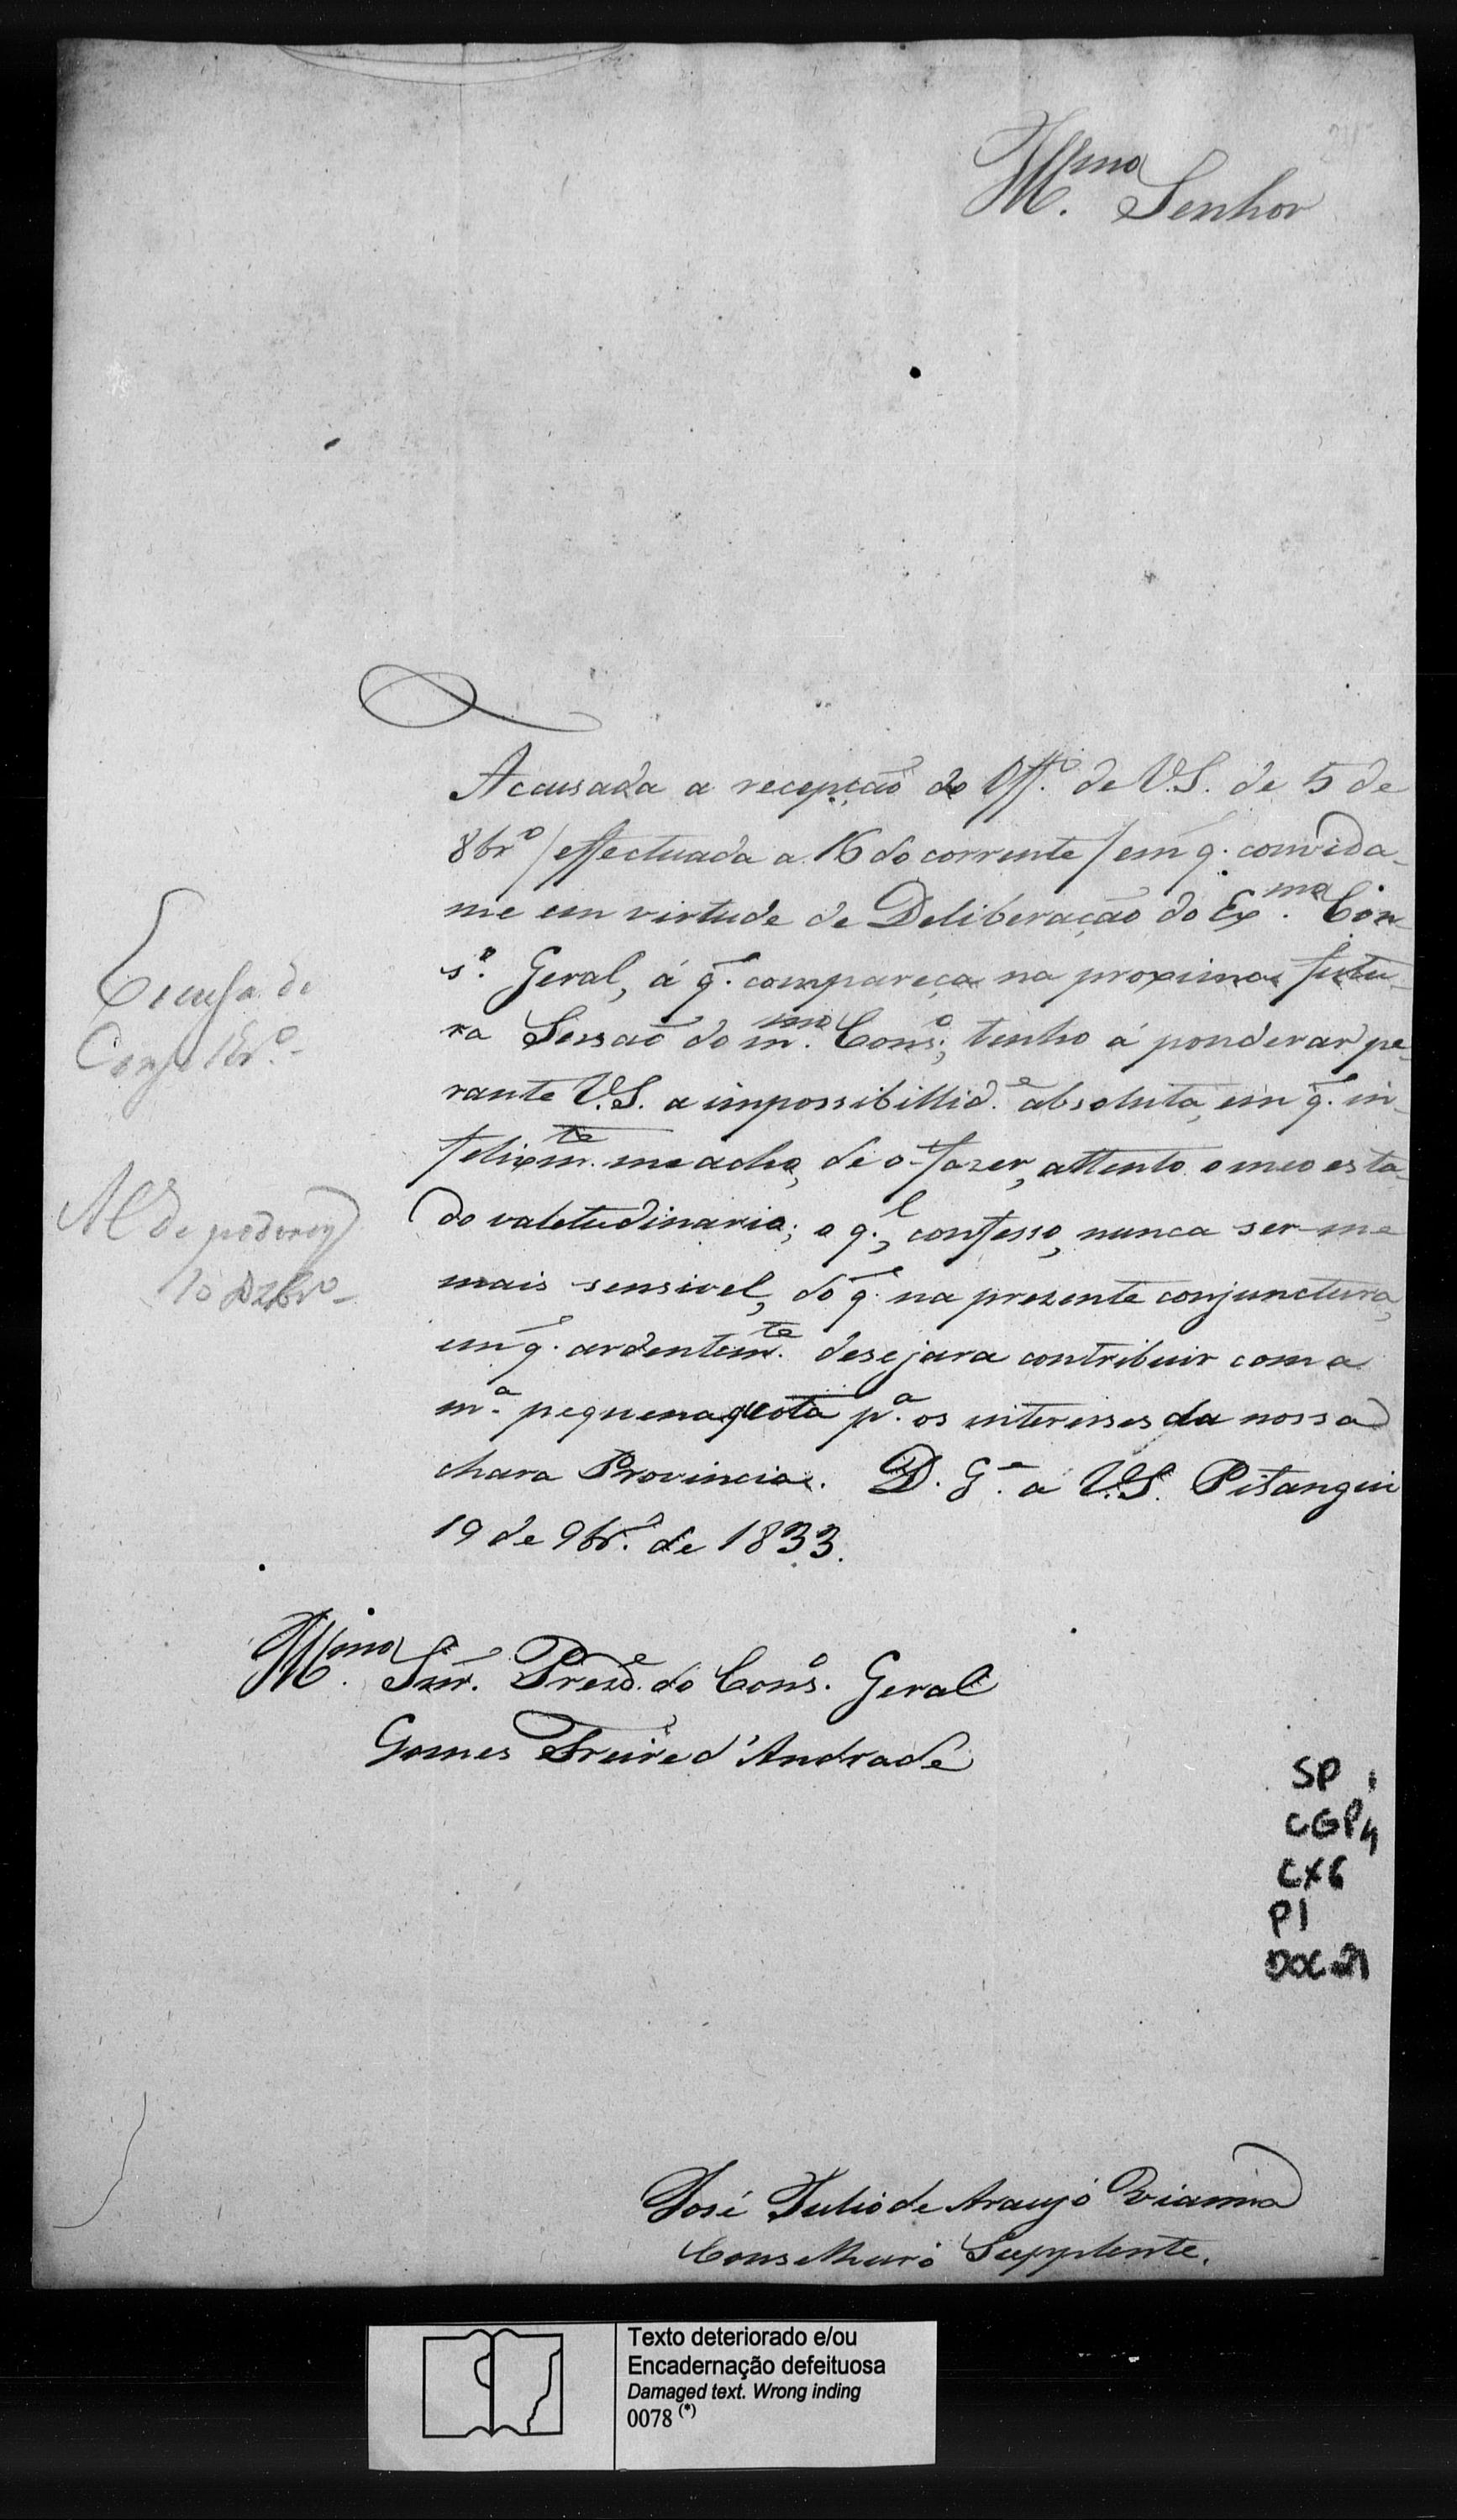 Illmo. Senhor
Acausada a recepção do Off.º de V.S. de 5 de
8brº / effectuada a 16 do corrente / em q. convida-
me em virtude de Deliberação do Exmo. Con-
sº. Geral, á q. compareça na proxima futu-
ra Sessaõ do mmo. Consº., tenho á ponderar pe-
rante V.S. a impossibillid.e absoluta, em q. in-
felixmte. me acho, de o-fazer, attento o meo esta-
do valetudinario; o q.l, confesso, nunca ser-me
mais sensivel, do q. na presente conjunctura,
em q. ardentemte. desejara contribuir com a
m.a pequena quota p.a os interesses da nossa
chara Provincia. D. G.e a V.S. Pitangui
19 de 9brº. de 1833.
Illmo. Snr. Prezd.e do Consº. Geral
Gomes Freire d'Andrade
José Julio de Araujo Vianna
Conselheiro Supplente.
Escusa de
Consº
10 Dzbrº
SP
CGP4
CX6
P1
DOC 21
Texto deteriorado e/ou
Encadernação defeituosa
Damaged text. Wrong inding
0078 (*)